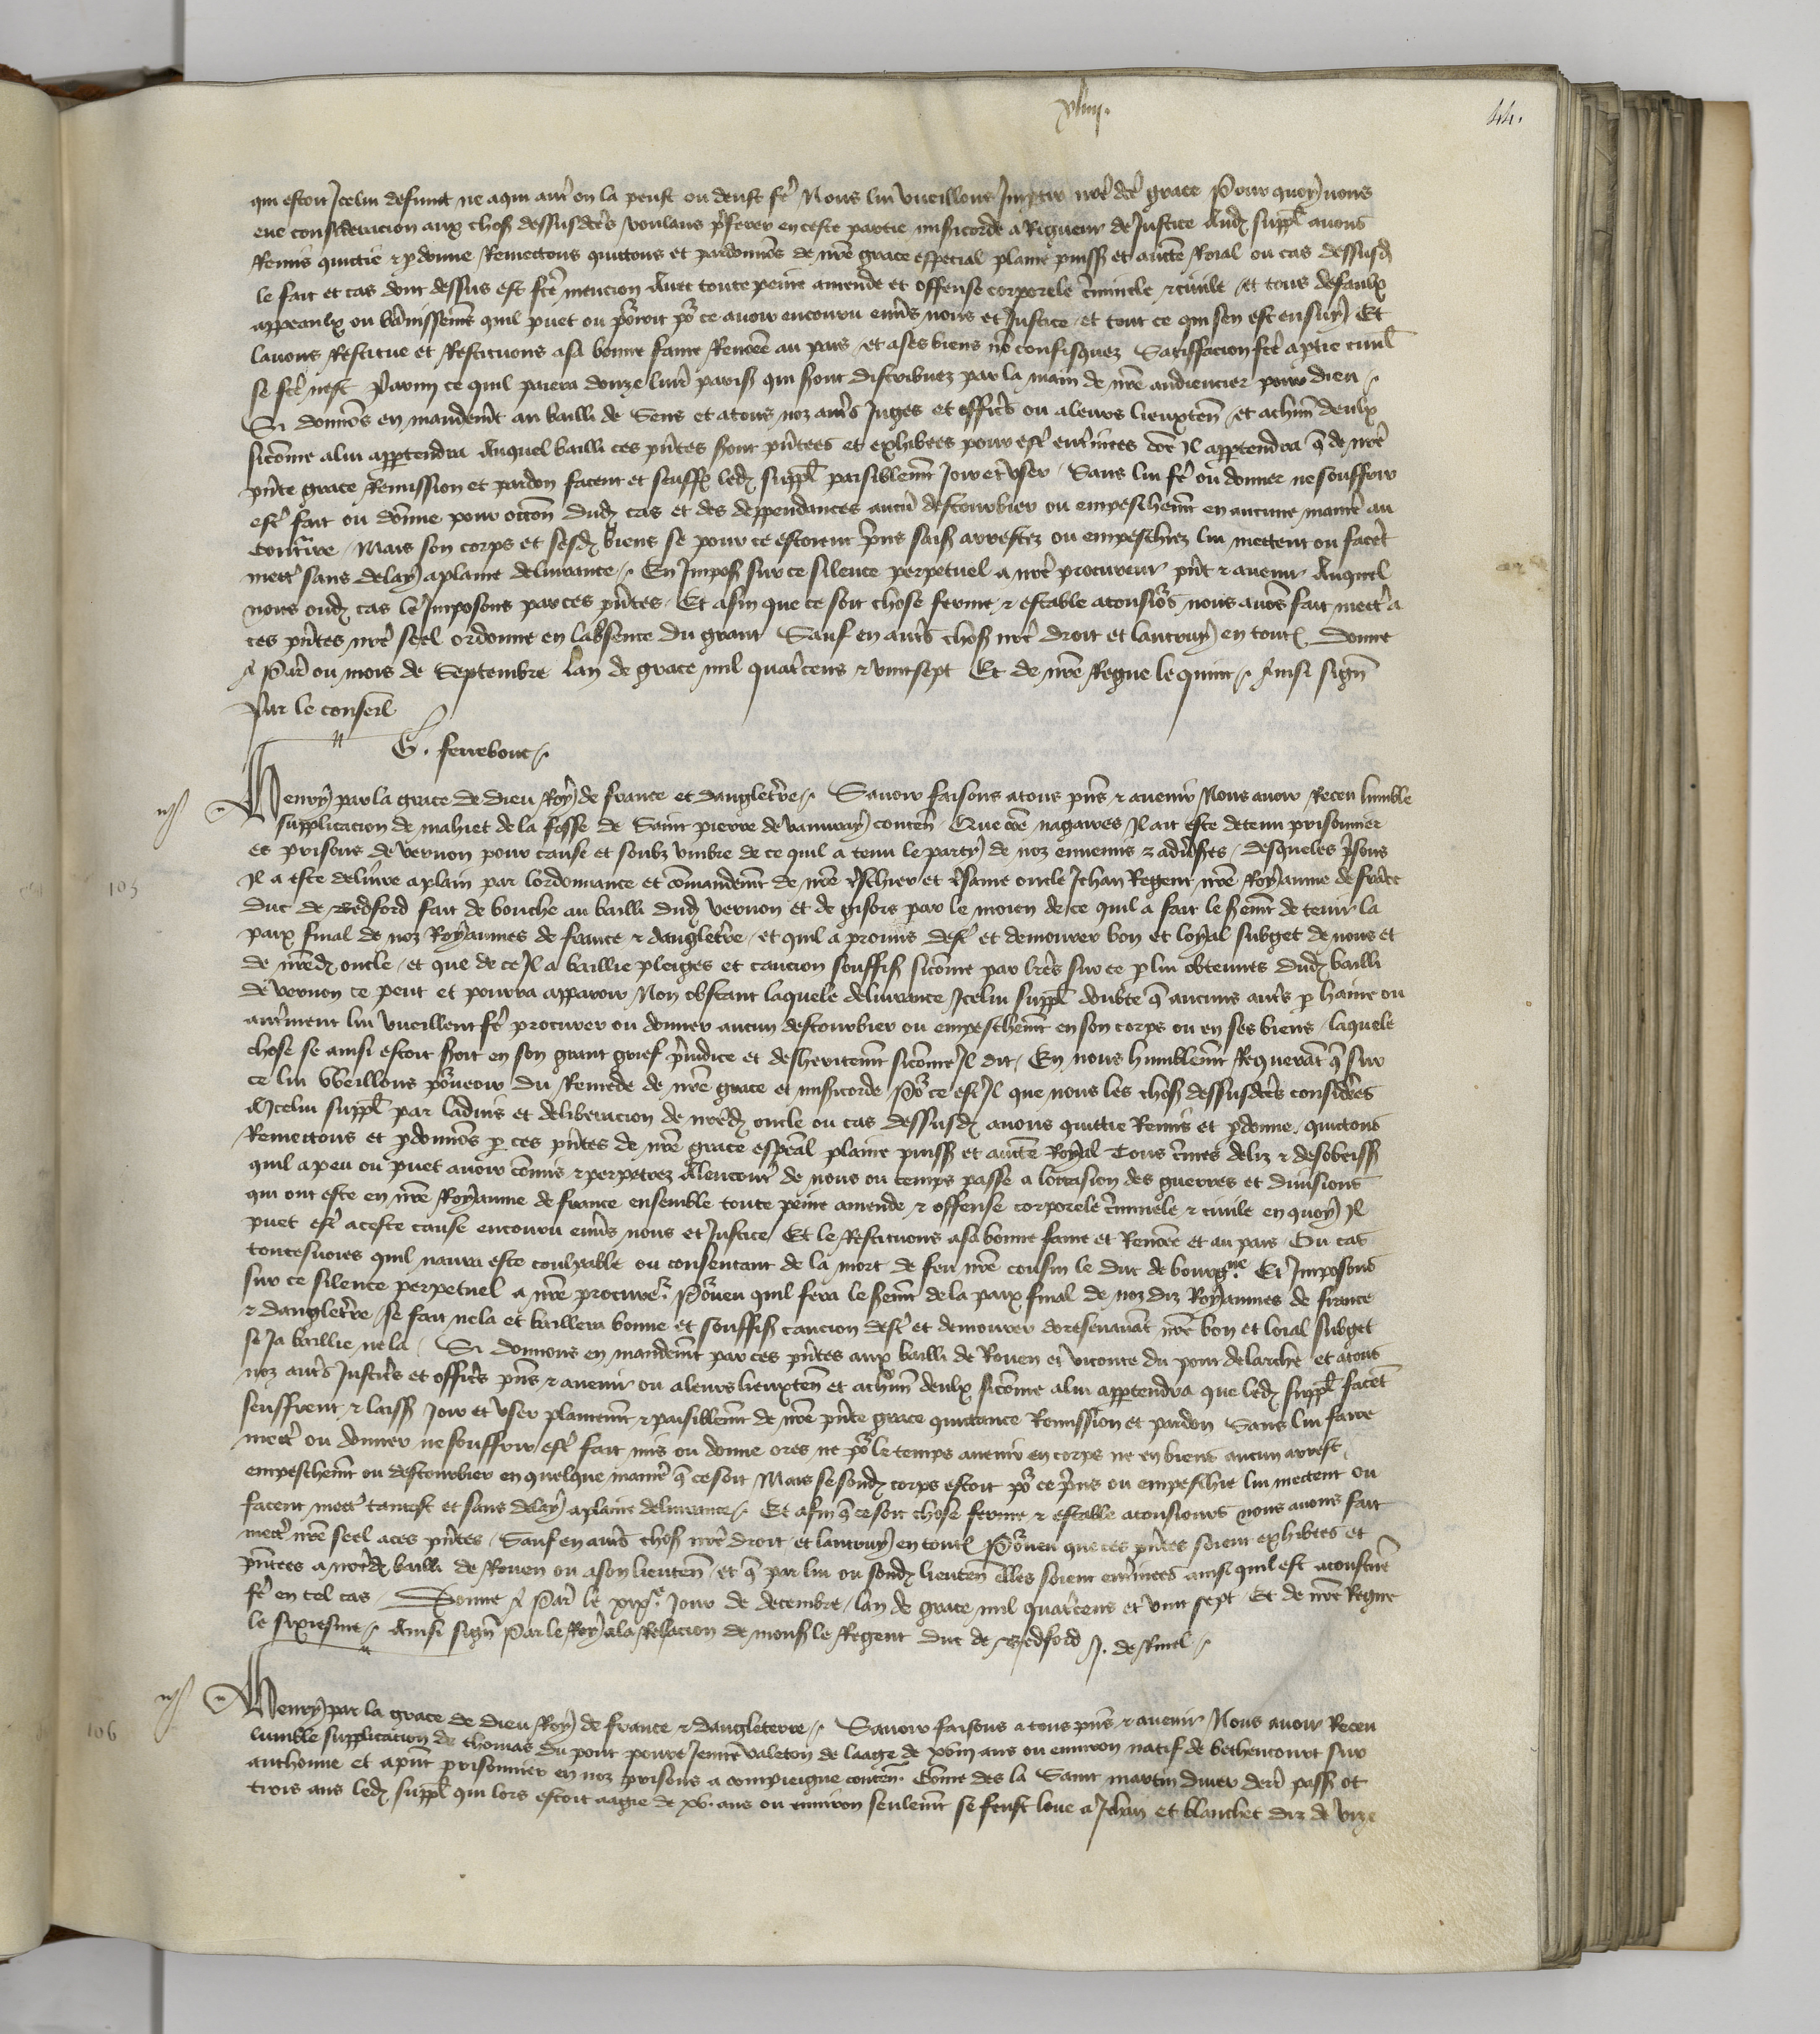 xliiii.
44.
qui estoit Icelui defunct ne a qui autre on la peust ou deust fe Nous lui vueillons Impartir nre dce grace Pour quoy nous
eue consideracion aux choses dessusdces voulans pferer en ceste partie misericorde a Rigueur de Justice Audz suppl avons
Remis quictie & pdonne Remectons quictons et pardonnons de nre grace especial plaine puissance et aucte Roial ou cas dessusd
le fait et cas dont dessus est fce mencion Avec toute peine amende et offense corporele criminele & civile et tous defaulx
appeaulx ou bannissemens quil puet ou pourroit pour ce avoir encouru envers nous et Justice et tout ce qui sen est ensuy Et
lavons Restitue et Restituons a sa bonne fame Renommee au pais et a ses biens non confisquez Satisfacion fce a ptie civil
se fce nest Parmi ce quil paiera douze livres parisis qui seront distribuez par la main de nre audiencier pour dieu
Si donnons en mandement au bailli de Sens et a tous noz autres Juges et officiers ou a leurs lieuxten et a chun deulx
sicomme a lui appartendra Auquel bailli ces pntes seront pntees et exhibees pour estre enterinees dont Il appartendra que de nre
pnte grace Remission et pardon facent et seuffrent ledz suppl paisiblement Joir et user Sans lui fe ou donner ne souffrir
estre fait ou donne pour occon dudz cas et des deppendances aucun destourbier ou empeschement en aucune maniere au
contraire Mais son corps et sesdz biens se pour ce estoient prins saisis arrestez ou empeschiez lui mettent ou facent
mectre sans delay a plaine delivrance En Imposant sur ce silence perpetuel a nre procureur pnt & avenir Auquel
nous oudz cas le Imposons par ces pntes Et afin que ce soit chose ferme & estable a tousjours nous avons fait mectre a
ces pntes nre seel ordonne en labsence du grant Sauf en autres choses nre droit et lautruy en toutes Donne
a Paris ou mois de Septembre Lan de grace mil quatrecens & vint sept Et de nre Regne le quint Ainsi signe
Par le conseil
G. ferrebouc
105
Henry par la grace de dieu Roy de france et dangleterre Savoir faisons a tous pns & avenir Nous avoir Receu lumble
supplicacion de mahiet de la fosse de Saint pierre de vauvray conten Que comme nagaires Il ait este detenu prisonnier
es prisons de vernon pour cause et soubz umbre de ce quil a tenu le party de noz ennemis & adversaires desqueles prisons
Il a este delivre a plain par lordonnance et commandement de nre treschier et tresame oncle Jehan Regent nre Royaume de france
Duc de Bedford fait de bouche au bailli dudz vernon et de gisors par le moien de ce quil a fait le serment de tenir la
paix final de noz Royaumes de france & dangleterre et quil a promis destre et demourer bon et loyal subget de nous et
de nredz oncle et que de ce Il a baillie pleiges et caucion souffisant sicomme par lres sur ce p lui obtenues dudz bailli
de vernon ce peut et pourra apparoir Non obstant laquele delivrance Icelui suppl doubte que aucuns autres p haine ou
autrement lui vueillent fe procurer ou donner aucun destourbier ou empeschement en son corps ou en ses biens laquele
chose se ainsi estoit seroit en son grant grief prejudice et desheritement sicomme Il dit En nous humblement Requerant que sur
ce lui Vueillons pourveoir du Remede de nre grace et misericorde Pour ce est Il que nous les choses dessusdces considerees
A Icelui suppl par ladvis et deliberacion de nredz oncle ou cas dessusdz avons quictie Remis et pdonne quictons
Remectons et pdonnons p ces pntes de nre grace especial plaine puissance et aucte Royal Tous crimes deliz & desobeissances
quil a peu ou puet avoir commis & perpetrez A lencontre de nous ou temps passe a loccasion des guerres et divisions
qui ont este en nre Royaume de france ensemble toute peine amende & offense corporele criminele & civile en quoy Il
puet estre a ceste cause encouru envers nous et Justice Et le Restituons a sa bonne fame et Renommee et au pais Ou cas
toutesvoies quil naura este coulpable ou consentant de la mort de feu nre cousin le duc de bourgne Et Imposons
sur ce silence perpetuel a nre procureur Pourveu quil fera le serment de la paix final de noz diz Royaumes de france
& dangleterre se fait ne la et baillera bonne et souffisant caucion destre et demourer doresenavant nre bon et loial subget
se Ja baillie ne la Si donnons en mandement par ces pntes aux bailli de Rouen et viconte du pont de larche et a tous
noz autres Justiciers et officiers pns & avenir ou a leurs lieuxten et a chun deulx sicomme a lui appartendra que ledz suppl facent
seuffrent & laissent Joir et user plainement & paisiblement de nre pnte grace quictance Remission et pardon Sans lui faire
mectre ou donner ne souffrir estre fait mis ou donne ores ne pour le temps avenir en corps ne en biens aucun arrest
empeschement ou destourbier en quelque maniere que ce soit Mais se sondz corps estoit pour ce prins ou empeschie lui mectent ou
facent mectre tantost et sans delay a plaine delivrance Et afin que ce soit chose ferme & estable a tousjours nous avons fait
mectre nre seel a ces pntes Sauf en autres choses nre droit et lautruy en toutes Pourveu que ces pntes soient exhibees et
pntees a nredz bailli de Rouen ou a son lieuten et que par lui ou sondz lieuten elles soient enterinees ainsi quil est acoustume
fe en tel cas Donne a Paris le xixe Jour de decembre lan de grace mil quatrecens et vint sept Et de nre Regne
le sixiesme Ainsi signe Par le Roy a la Relacion de mons le Regent duc de Bedford J. de Rinel
106
Henry par la grace de dieu Roy de france & dangleterre Savoir faisons a tous pns & avenir Nous avoir Receu
lumble supplicacion de thomas du pont povre Jeune valeton de laage de xviii ans ou environ natif de bethencourt sur
anthonne et apnt prisonnier en noz prisons a compieigne conten Comme des la Saint martin diver derr passe ot
trois ans ledz suppl qui lors estoit aagie de xv. ans ou environ seulement se feust loue a Jehan et blanchet diz de vize